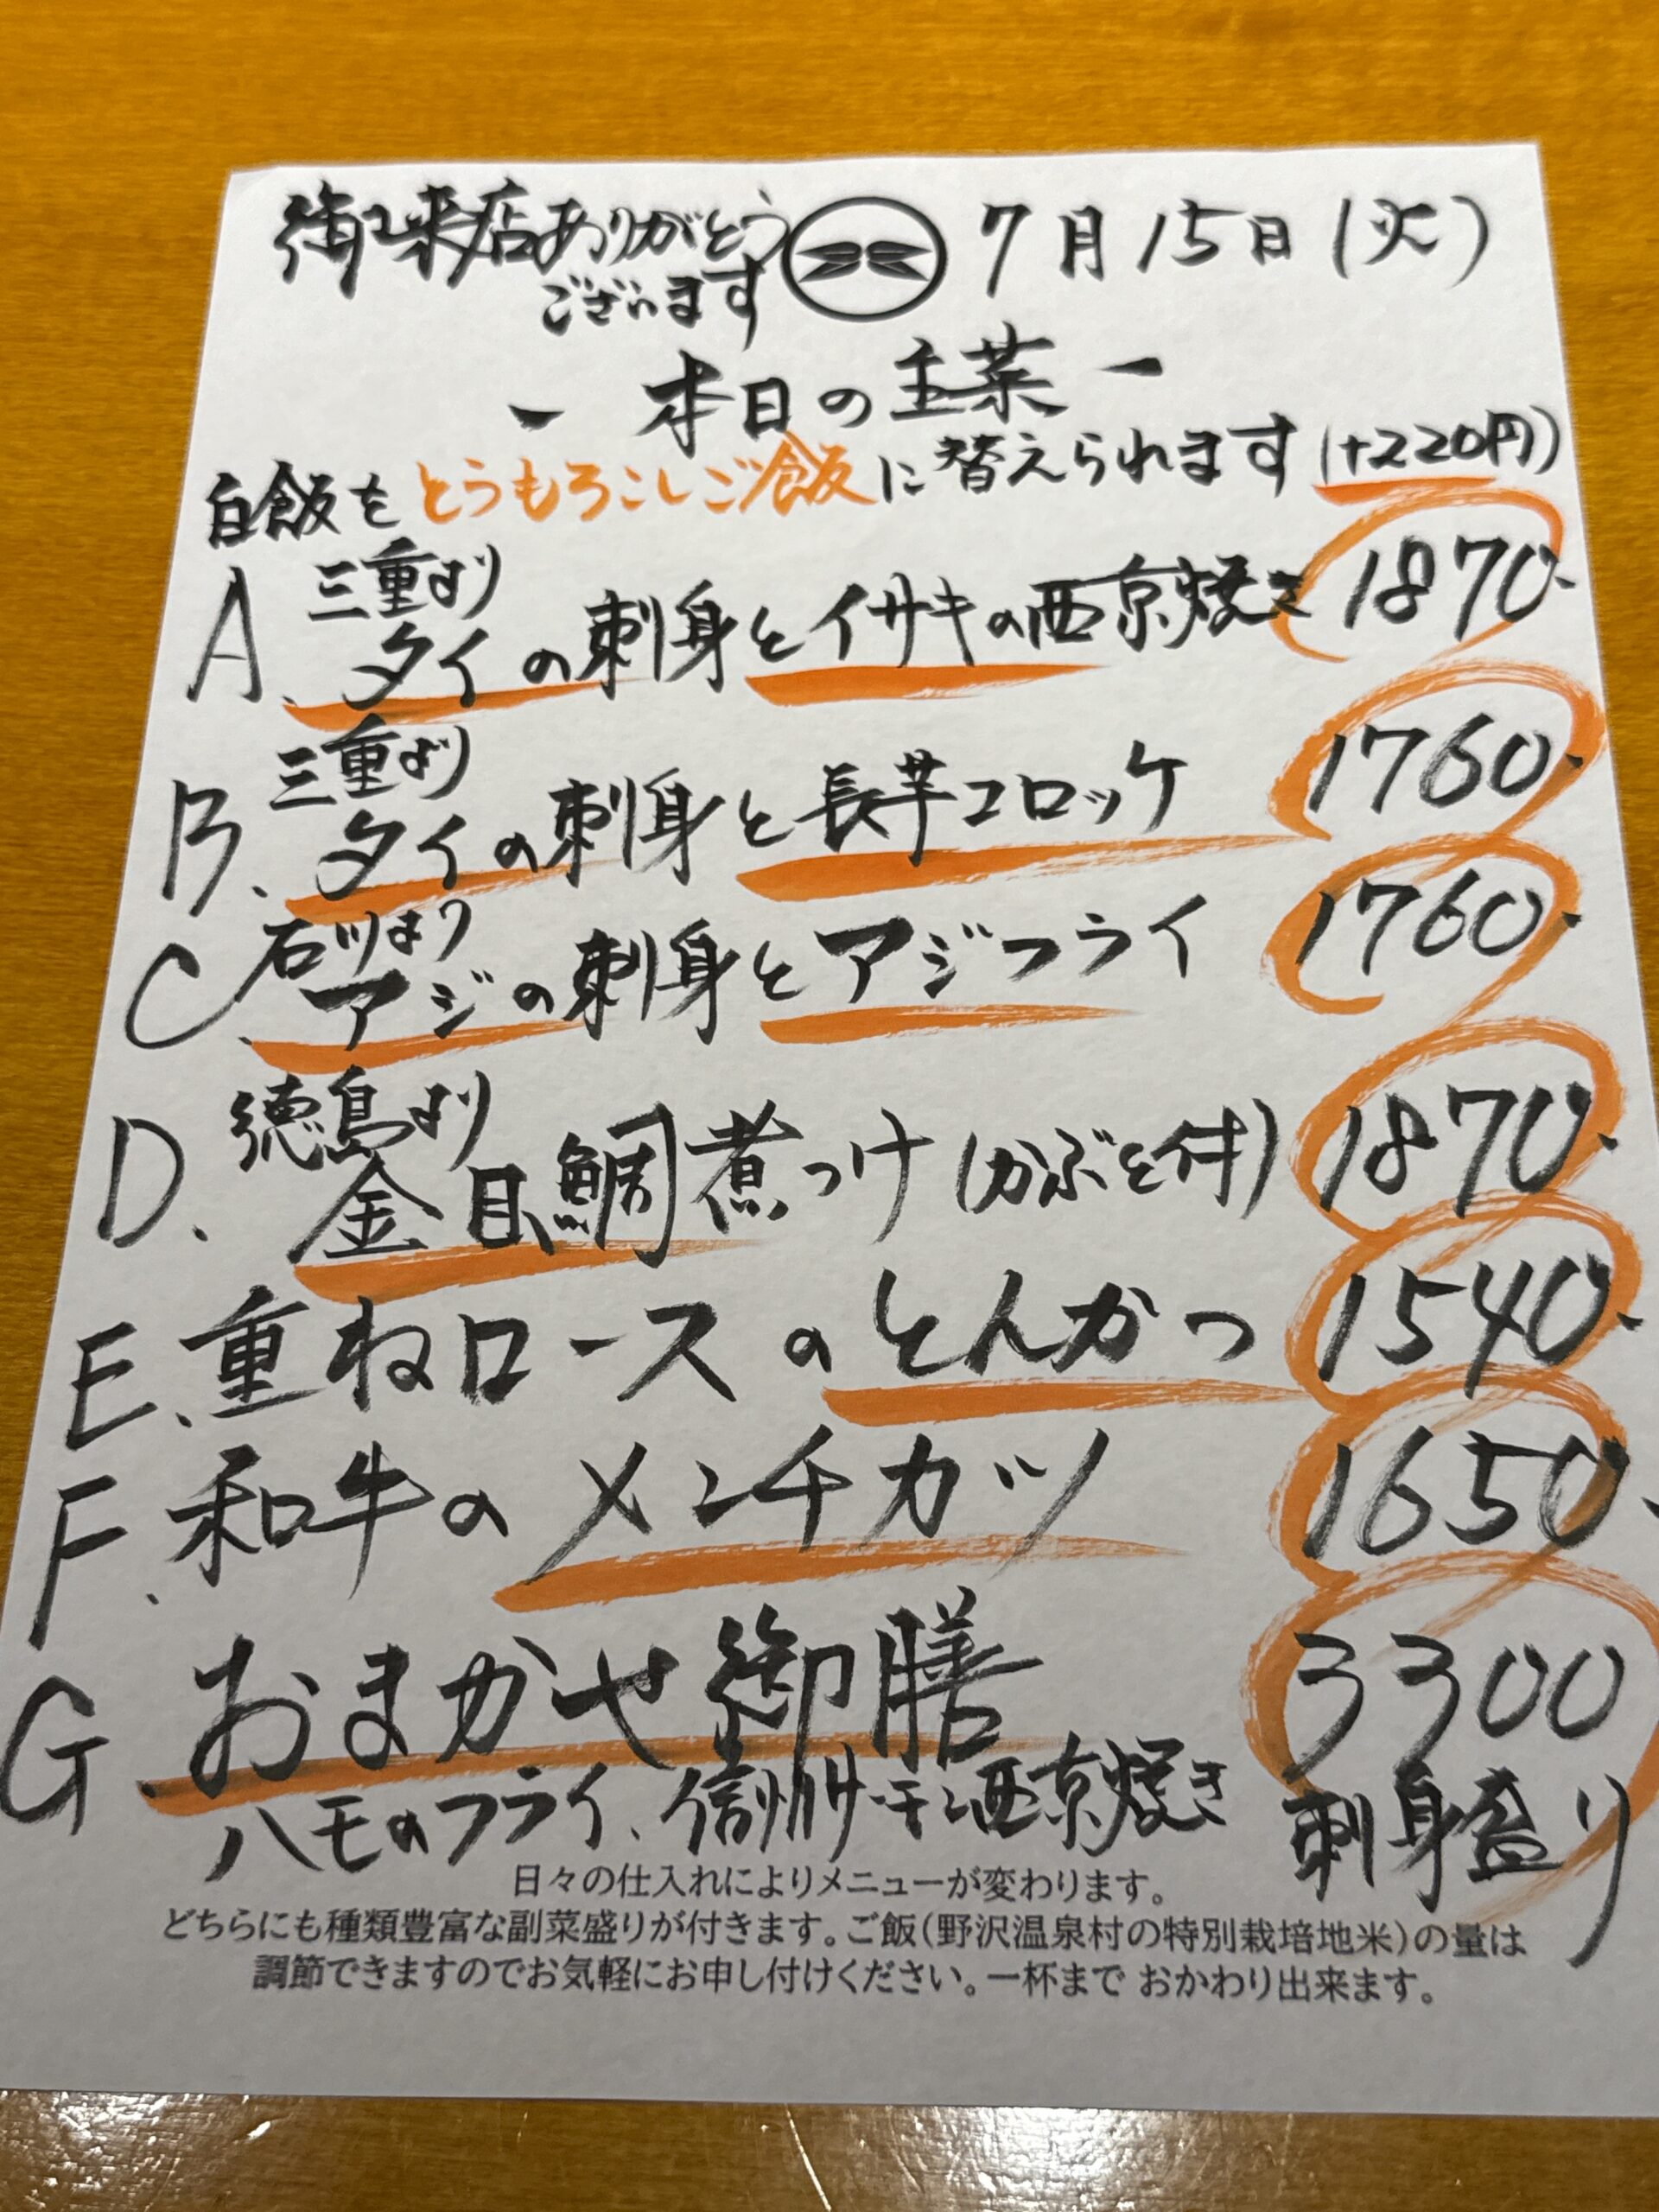 御来店ありがとう
ございます
7月15日(火)
- 本日の主菜 -
白飯をとうもろこしご飯に替えられます(+220円)
三重より
A. タイの刺身とイサキの西京焼き 1870.
三重より
B. タイの刺身と長芋コロッケ 1760.
石川より
C. アジの刺身とアジフライ 1760.
徳島より
D. 金目鯛煮つけ(かぶと付) 1870.
E. 重ねロースのとんかつ 1540.
F. 和牛のメンチカツ 1650.
G. おまかせ御膳 3300
ハモのフライ、信州サーモン西京焼き 刺身盛り
日々の仕入れによりメニューが変わります。
どちらにも種類豊富な副菜盛りが付きます。ご飯(野沢温泉村の特別栽培地米)の量は
調節できますのでお気軽にお申し付けください。一杯まで おかわり出来ます。